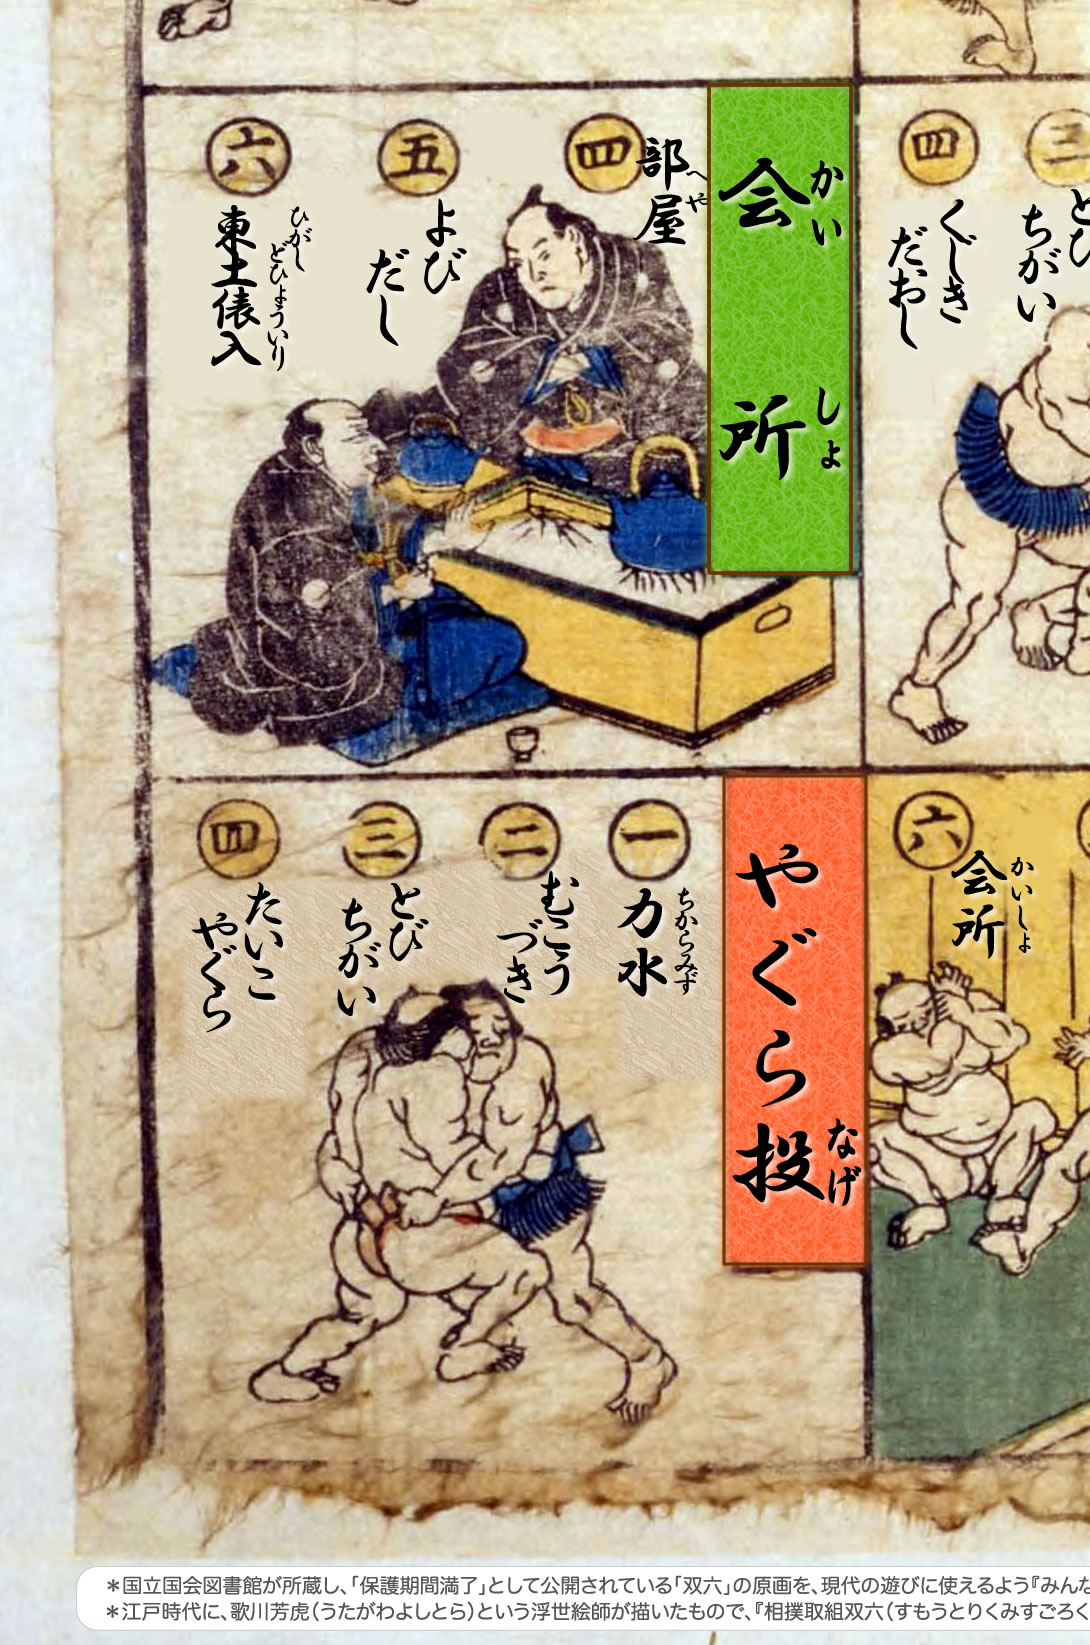 会所
かいしょ
四
部屋
へや
五
よび
だし
六
東土俵入
ひがしどひょういり
三
とび
ちがい
四
くじき
だおし
やぐら投
なげ
一
力水
ちからみず
二
むこう
づき
三
とび
ちがい
四
たいこ
やぐら
六
会所
かいしょ
＊国立国会図書館が所蔵し、「保護期間満了」として公開されている「双六」の原画を、現代の遊びに使えるよう『みんた
＊江戸時代に、歌川芳虎（うたがわよしとら）という浮世絵師が描いたもので、『相撲取組双六（すもうとりくみすごろく